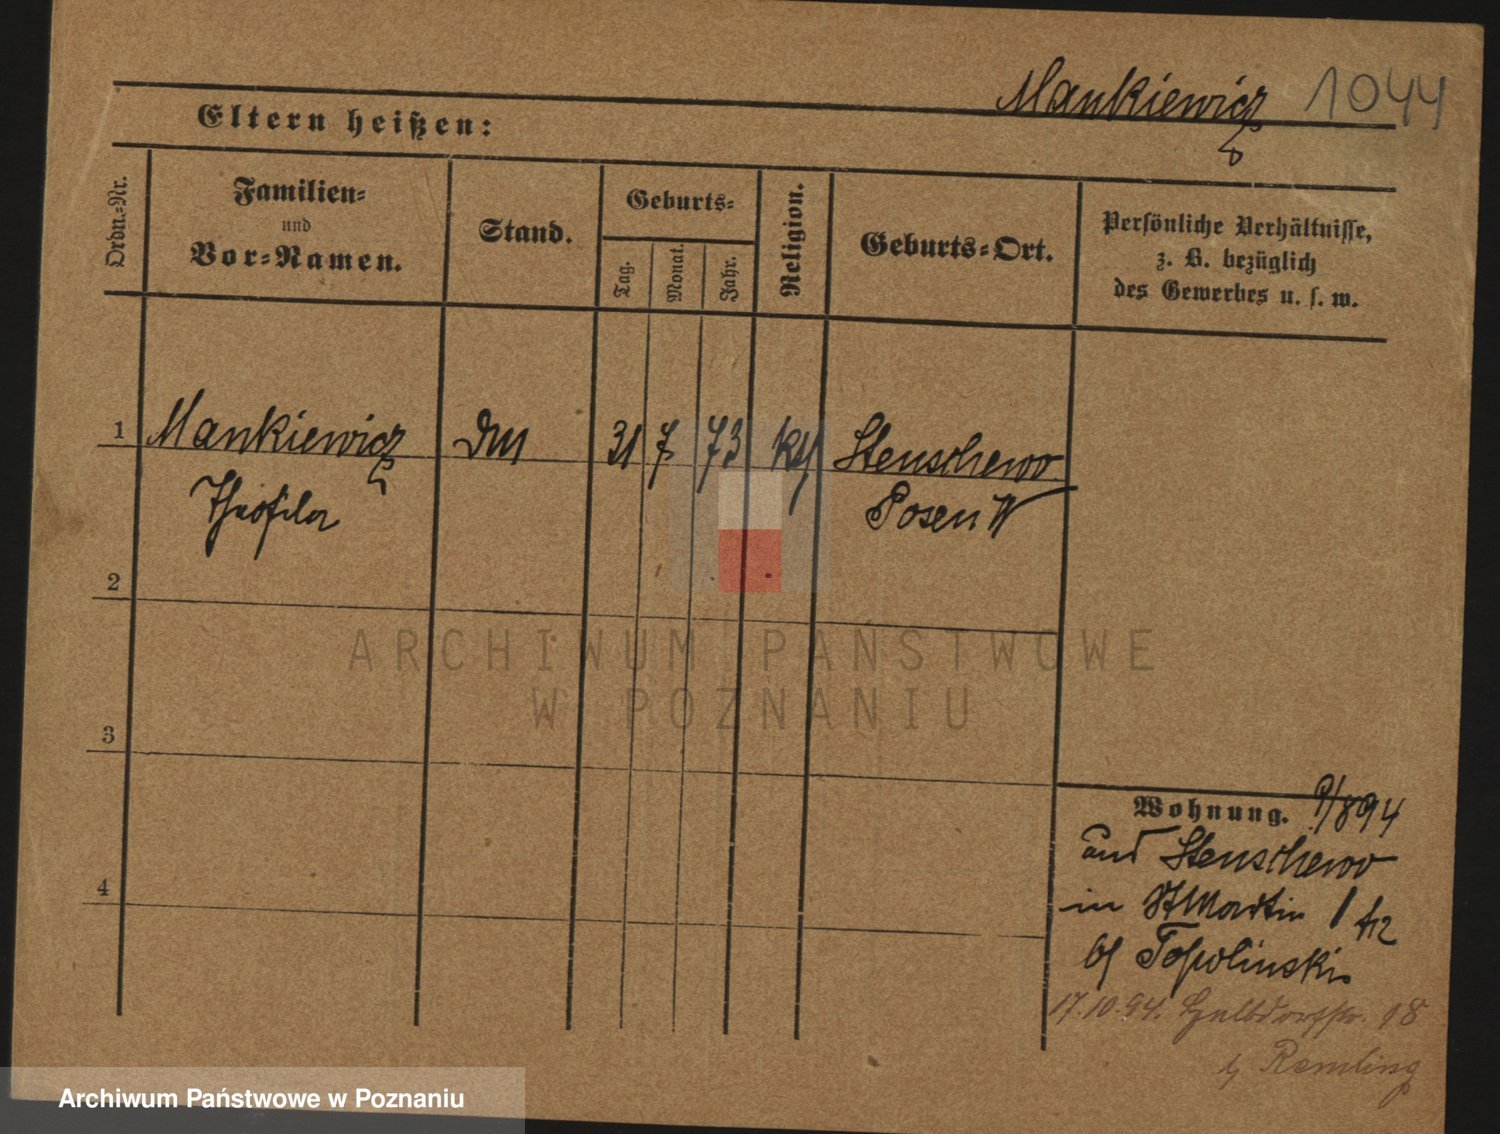 Mankiewicz 1044
Eltern heißen:
Ordn.-Nr.
Familien-
und
Vor-Namen.
Stand.
Geburts-
Tag.
Monat.
Jahr.
Religion.
Geburts-Ort.
Persönliche Verhältnisse,
z. B. bezüglich
des Gewerbes u. s. w.
1
Mankiewicz 31 7 73 Stenschewo
Theofila Posen W
2
3
4
ARCHIWUM PAŃSTWOWE
W POZNANIU
Wohnung. 9/894
Stenschewo
in St Martin 1
bj Topolinski
17.10.94. Halbdorfstr. 18
bj Remling
Archiwum Państwowe w Poznaniu